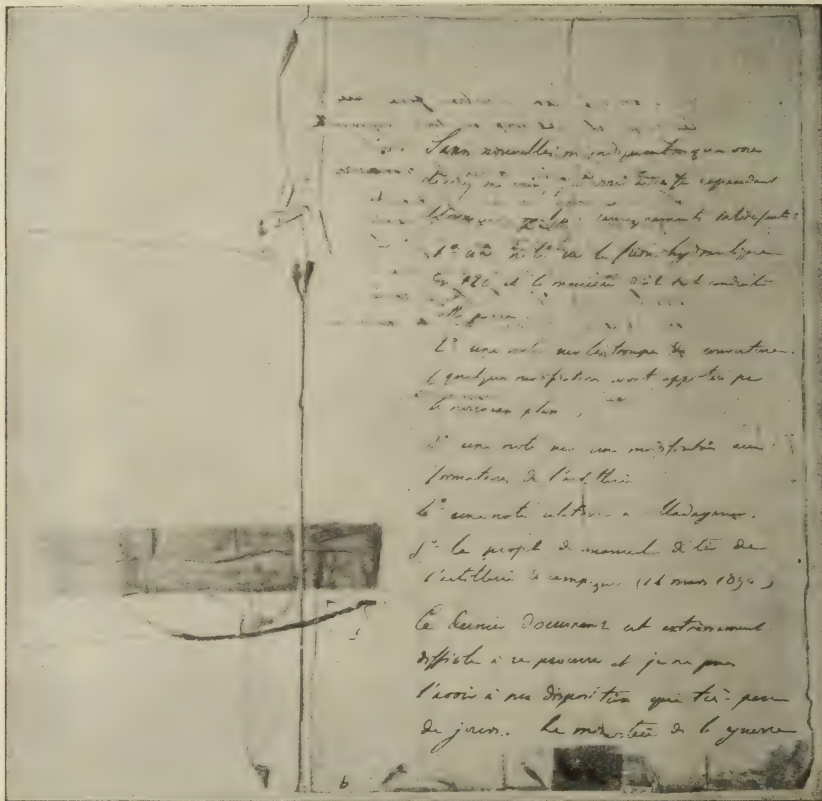 Sans nouvelles m'indiquant que vous
désirez me voir, je vous adresse cependant
Monsieur quelques renseignements intéressants
1° une note sur le frein hydraulique
du 120 et la manière dont s'est conduite
cette pièce.
2° une note sur les troupes de couverture.
quelques modifications seront apportées par
le nouveau plan
3° une note sur une modification aux
formations de l'artillerie
4° une note relative à Madagascar.
5° le projet de manuel de tir de
l'artillerie de campagne (14 mars 1894)
Ce dernier document est extrêmement
difficile à se procurer et je ne puis
l'avoir à ma disposition que très peu
de jours. Le ministère de la guerre
b